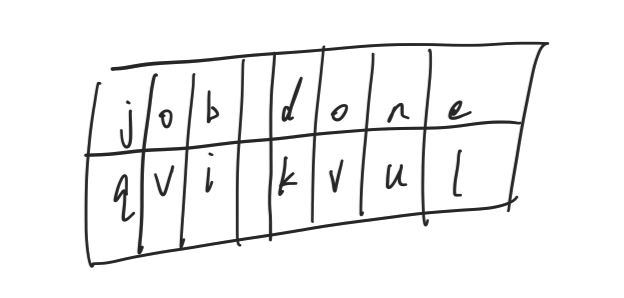 job done
qvi kvul